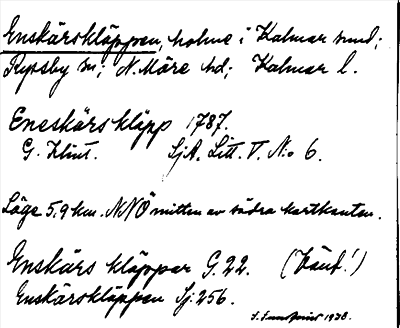 Enskärskläppen, holme i Kalmar sund;
Ryssby sn; N. Möre hd; Kalmar l.
Eneskärs kläpp 1787.
G. Klint. SjA. Litt. V. No 6.
Läge 5,9 km. NNÖ mitten av södra kartkanten.
Enskärs kläppar G. 22. (Vänd!)
Enskärskläppen Sj. 256.
1938.